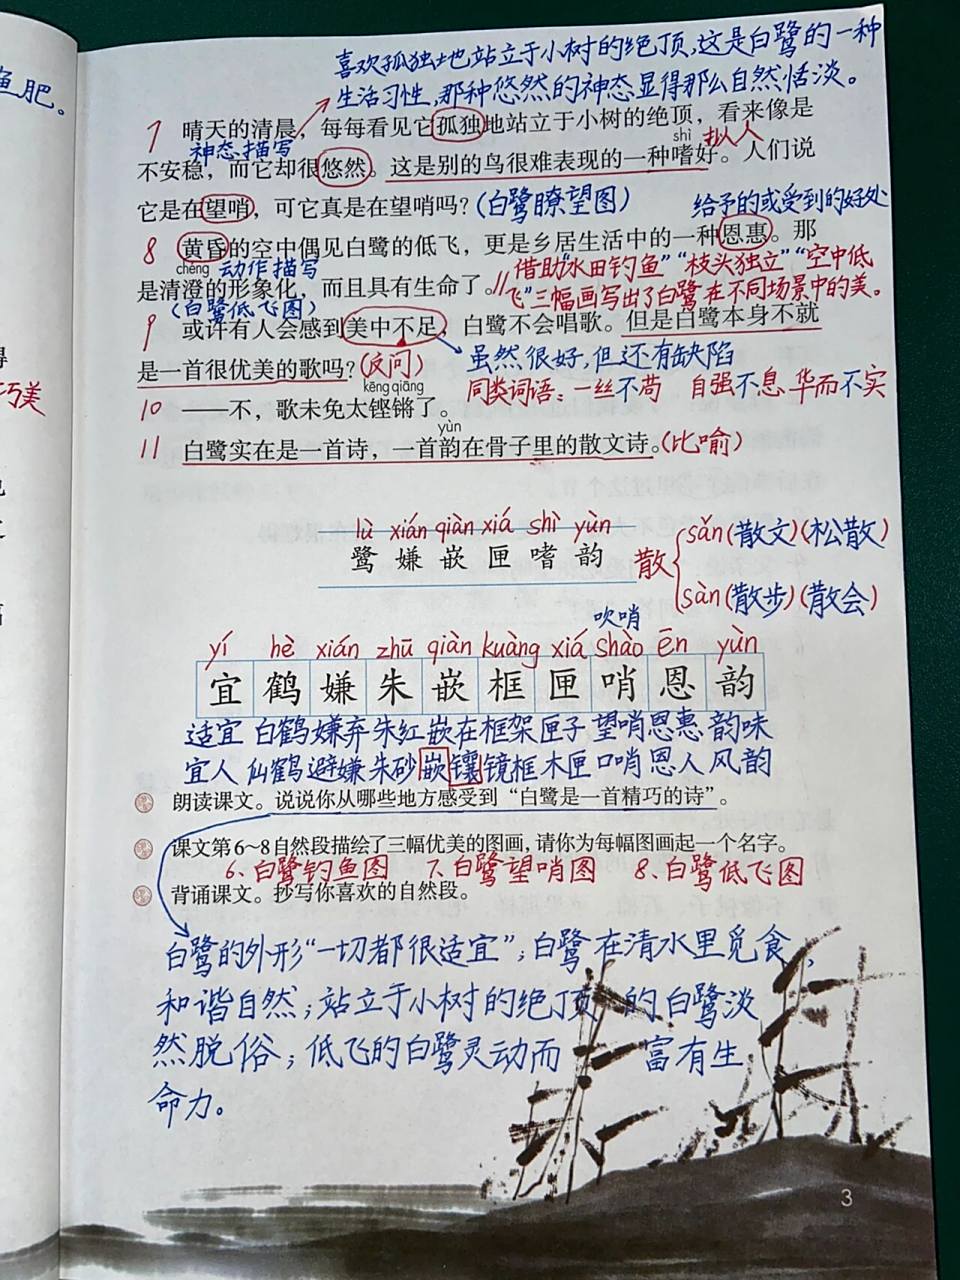 鱼肥。
巧美
喜欢孤独地站立于小树的绝顶,这是白鹭的一种
生活习性,那种悠然的神态显得那么自然恬淡。
7 晴天的清晨，每每看见它孤独地站立于小树的绝顶，看来像是
神态描写 shì 拟人
不安稳，而它却很悠然。这是别的鸟很难表现的一种嗜好。人们说
它是在望哨，可它真是在望哨吗？(白鹭瞭望图)
给予的或受到的好处
8 黄昏的空中偶见白鹭的低飞，更是乡居生活中的一种恩惠。那
chéng 动作描写
是清澄的形象化，而且具有生命了。//借助“水田钓鱼”“枝头独立”“空中低
飞”三幅画写出了白鹭在不同场景中的美。
(白鹭低飞图)
9 或许有人会感到美中不足，白鹭不会唱歌。但是白鹭本身不就
是一首很优美的歌吗？(反问) 虽然很好,但还有缺陷
kēng qiāng 同类词语：一丝不苟 自强不息 华而不实
10 ——不，歌未免太铿锵了。
yùn
11 白鹭实在是一首诗，一首韵在骨子里的散文诗。(比喻)
lù xián qiàn xiá shì yùn
鹭 嫌 嵌 匣 嗜 韵
散 sǎn(散文)(松散)
sàn(散步)(散会)
吹哨
yí hè xián zhū qiàn kuàng xiá shào ēn yùn
宜 鹤 嫌 朱 嵌 框 匣 哨 恩 韵
适宜 白鹤 嫌弃 朱红 嵌在 框架 匣子 望哨 恩惠 韵味
宜人 仙鹤 避嫌 朱砂 嵌镶 镜框 木匣 口哨 恩人 风韵
朗读课文。说说你从哪些地方感受到“白鹭是一首精巧的诗”。
课文第6～8自然段描绘了三幅优美的图画，请你为每幅图画起一个名字。
6、白鹭钓鱼图 7、白鹭望哨图 8、白鹭低飞图
背诵课文。抄写你喜欢的自然段。
白鹭的外形“一切都很适宜”;白鹭在清水里觅食，
和谐自然;站立于小树的绝顶的白鹭淡
然脱俗;低飞的白鹭灵动而富有生
命力。
3